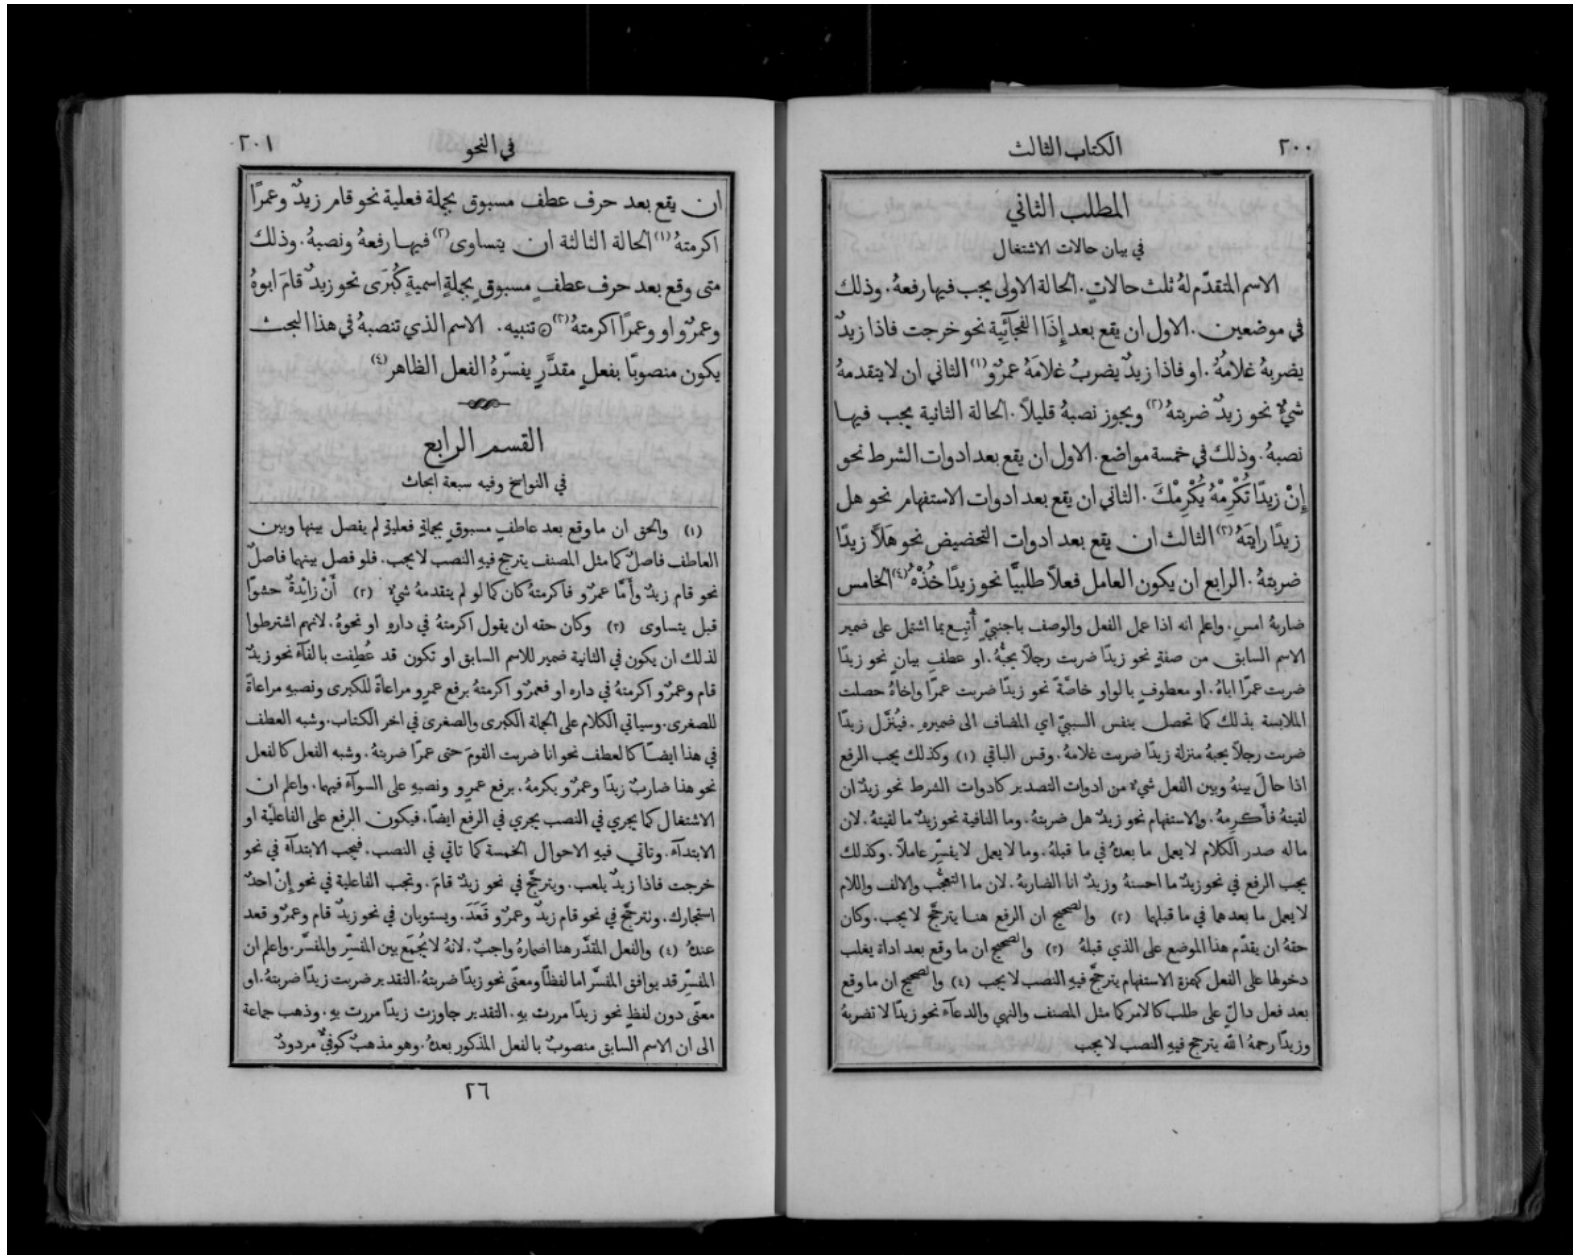 ٢٠٠
الكتاب الثالث
المطلب الثاني
في بيان حالات الاشتغال
الاسم المتقدّم لهُ ثلث حالاتٍ. الحالة الاولى يجب فيها رفعهُ. وذلك
في موضعين. الاول ان يقع بعد إِذَا الفجآئِية نحو خرجت فاذا زيدٌ
يضربهُ غلامُهُ. او فاذا زيدٌ يضربُ غلامَهُ عمرٌو (١) الثاني ان لا يتقدمهُ
شيءٌ نحو زيدٌ ضربتهُ (٢) ويجوز نصبهُ قليلاً. الحالة الثانية يجب فيها
نصبهُ. وذلك في خمسة مواضع. الاول ان يقع بعد ادوات الشرط نحو
إِنْ زيدًا تُكْرِمْهُ يُكْرِمْكَ. الثاني ان يقع بعد ادوات الاستفهام نحو هل
زيدًا رايتَهُ (٣) الثالث ان يقع بعد ادوات التحضيض نحو هَلاَّ زيدًا
ضربتهُ. الرابع ان يكون العامل فعلاً طلبيًّا نحو زيدًا خُذْهُ (٤) الخامس
ضاربهُ امسِ. واعلم انه اذا عمل الفعل والوصف باجنبيٍّ أُتبِع بما اشتمل على ضمير
الاسم السابق من صفةٍ نحو زيدًا ضربت رجلاً يحبُّهُ. او عطفِ بيانٍ نحو زيدًا
ضربت عمرًا اباهُ. او معطوفٍ بالواو خاصّةً نحو زيدًا ضربت عمرًا واخاهُ حصلت
الملابسة بذلك كما تحصل بنفس السببيّ اي المضاف الى ضميرهِ. فيُنزَّل زيدًا
ضربت رجلاً يحبهُ منزلة زيدًا ضربت غلامهُ. وقس الباقي (١) وكذلك يجب الرفع
اذا حالَ بينهُ وبين الفعل شيءٌ من ادوات التصدير كادوات الشرط نحو زيدٌ ان
لقيتهُ فأَكرِمهُ. والاستفهام نحو زيدٌ هل ضربتهُ. وما النافية نحو زيدٌ ما لقيتهُ. لان
ما له صدر الكلام لا يعمل ما بعدهُ في ما قبلهُ. وما لا يعمل لا يفسِّر عاملاً. وكذلك
يجب الرفع في نحو زيدٌ ما احسنهُ وزيدٌ انا الضاربهُ. لان ما التعجُّب والالف واللام
لا يعمل ما بعدهما في ما قبلهما (٢) والصحيح ان الرفع هنا يترجَّح لا يجب. وكان
حقهُ ان يقدّم هذا الموضع على الذي قبلهُ (٣) والصحيح ان ما وقع بعد اداة يغلب
دخولها على الفعل كهمزة الاستفهام يترجَّح فيهِ النصب لا يجب (٤) والصحيح ان ما وقع
بعد فعل دالٍّ على طلب كالامر كما مثل المصنف والنهي والدعآء نحو زيدًا لا تضربهُ
وزيدًا رحمهُ الله يترجح فيهِ النصب لا يجب
في النحو
٢٠١
ان يقع بعد حرف عطف مسبوق بجملة فعلية نحو قام زيدٌ وعمرًا
اكرمتهُ (١) الحالة الثالثة ان يتساوى (٢) فيها رفعهُ ونصبهُ. وذلك
متى وقع بعد حرف عطفٍ مسبوقٍ بجملةٍ اسميةٍ كُبْرَى نحو زيدٌ قامَ ابوهُ
وعمرٌو او وعمرًا اكرمتهُ (٣) تنبيه. الاسم الذي تنصبهُ في هذا البحث
يكون منصوبًا بفعلٍ مقدَّرٍ يفسّرهُ الفعل الظاهر (٤)
القسم الرابع
في النواسخ وفيه سبعة ابحاث
(١) والحق ان ما وقع بعد عاطفٍ مسبوقٍ بجملةٍ فعليةٍ لم يفصل بينها وبين
العاطف فاصلٌ كما مثل المصنف يترجح فيهِ النصب لا يجب. فلو فصل بينهما فاصلٌ
نحو قام زيدٌ وأَمَّا عمرٌو فاكرمتهُ كان كما لو لم يتقدمهُ شيءٌ (٢) أَنْ زائِدةٌ حشوًا
قبل يتساوى (٣) وكان حقه ان يقول اكرمتهُ في دارهِ او نحوهُ. لانهم اشترطوا
لذلك ان يكون في الثانية ضمير للاسم السابق او تكون قد عُطِفت بالفآء نحو زيدٌ
قام وعمرٌو اكرمتهُ في داره او فعمرٌو اكرمتهُ برفع عمرٍو مراعاةً للكبرى ونصبهِ مراعاةً
للصغرى. وسياتي الكلام على الجملة الكبرى والصغرى في اخر الكتاب. وشبه العطف
في هذا ايضًا كالعطف نحو انا ضربت القومَ حتى عمرًا ضربتهُ. وشبه الفعل كالفعل
نحو هذا ضاربٌ زيدًا وعمرٌو يكرمهُ. برفع عمرٍو ونصبهِ على السوآء فيهما. واعلم ان
الاشتغال كما يجري في النصب يجري في الرفع ايضًا. فيكون الرفع على الفاعليّة او
الابتدآء. وتاتي فيهِ الاحوال الخمسة كما تاتي في النصب. فيجب الابتدآء في نحو
خرجت فاذا زيدٌ يلعب. ويترجَّح في نحو زيدٌ قامَ. وتجب الفاعلية في نحو إِنْ احدٌ
استجارك. وتترجَّح في نحو قام زيدٌ وعمرٌو قَعَدَ. ويستويان في نحو زيدٌ قام وعمرٌو قعد
عندهُ (٤) والفعل المقدَّر هنا اضمارهُ واجبٌ. لانهُ لا يُجمَع بين المفسِّر والمفسَّر. واعلم ان
المفسِّر قد يوافق المفسَّر اما لفظًا ومعنًى نحو زيدًا ضربتهُ. التقدير ضربت زيدًا ضربتهُ. او
معنًى دون لفظٍ نحو زيدًا مررت بهِ. التقدير جاوزت زيدًا مررت بهِ. وذهب جماعة
الى ان الاسم السابق منصوبٌ بالفعل المذكور بعدهُ. وهو مذهبٌ كوفيٌّ مردودٌ
٢٦